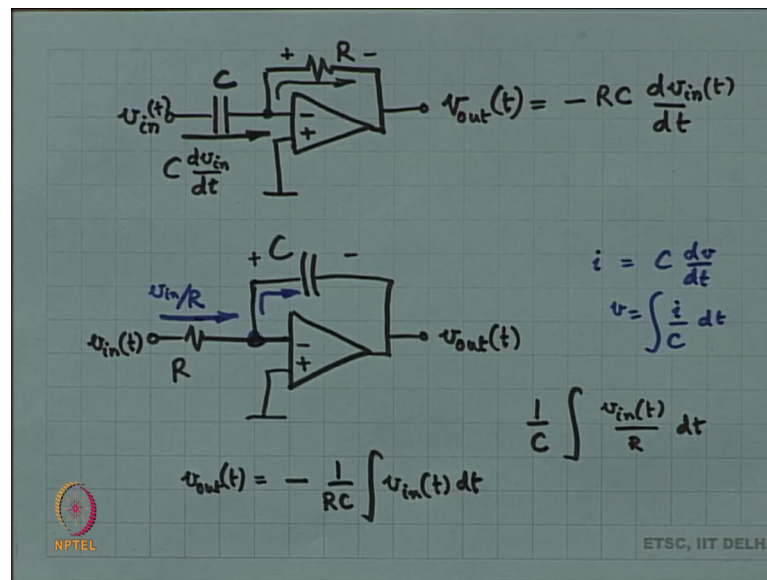 + R -
C
v_in(t)
-
+
v_out(t) = - RC dv_in(t)/dt
C dv_in/dt
+ C -
v_in/R
i = C dv/dt
v = ∫ i/C dt
v_in(t)
R
-
+
v_out(t)
1/C ∫ v_in(t)/R dt
v_out(t) = - 1/RC ∫ v_in(t) dt
NPTEL
ETSC, IIT DELH